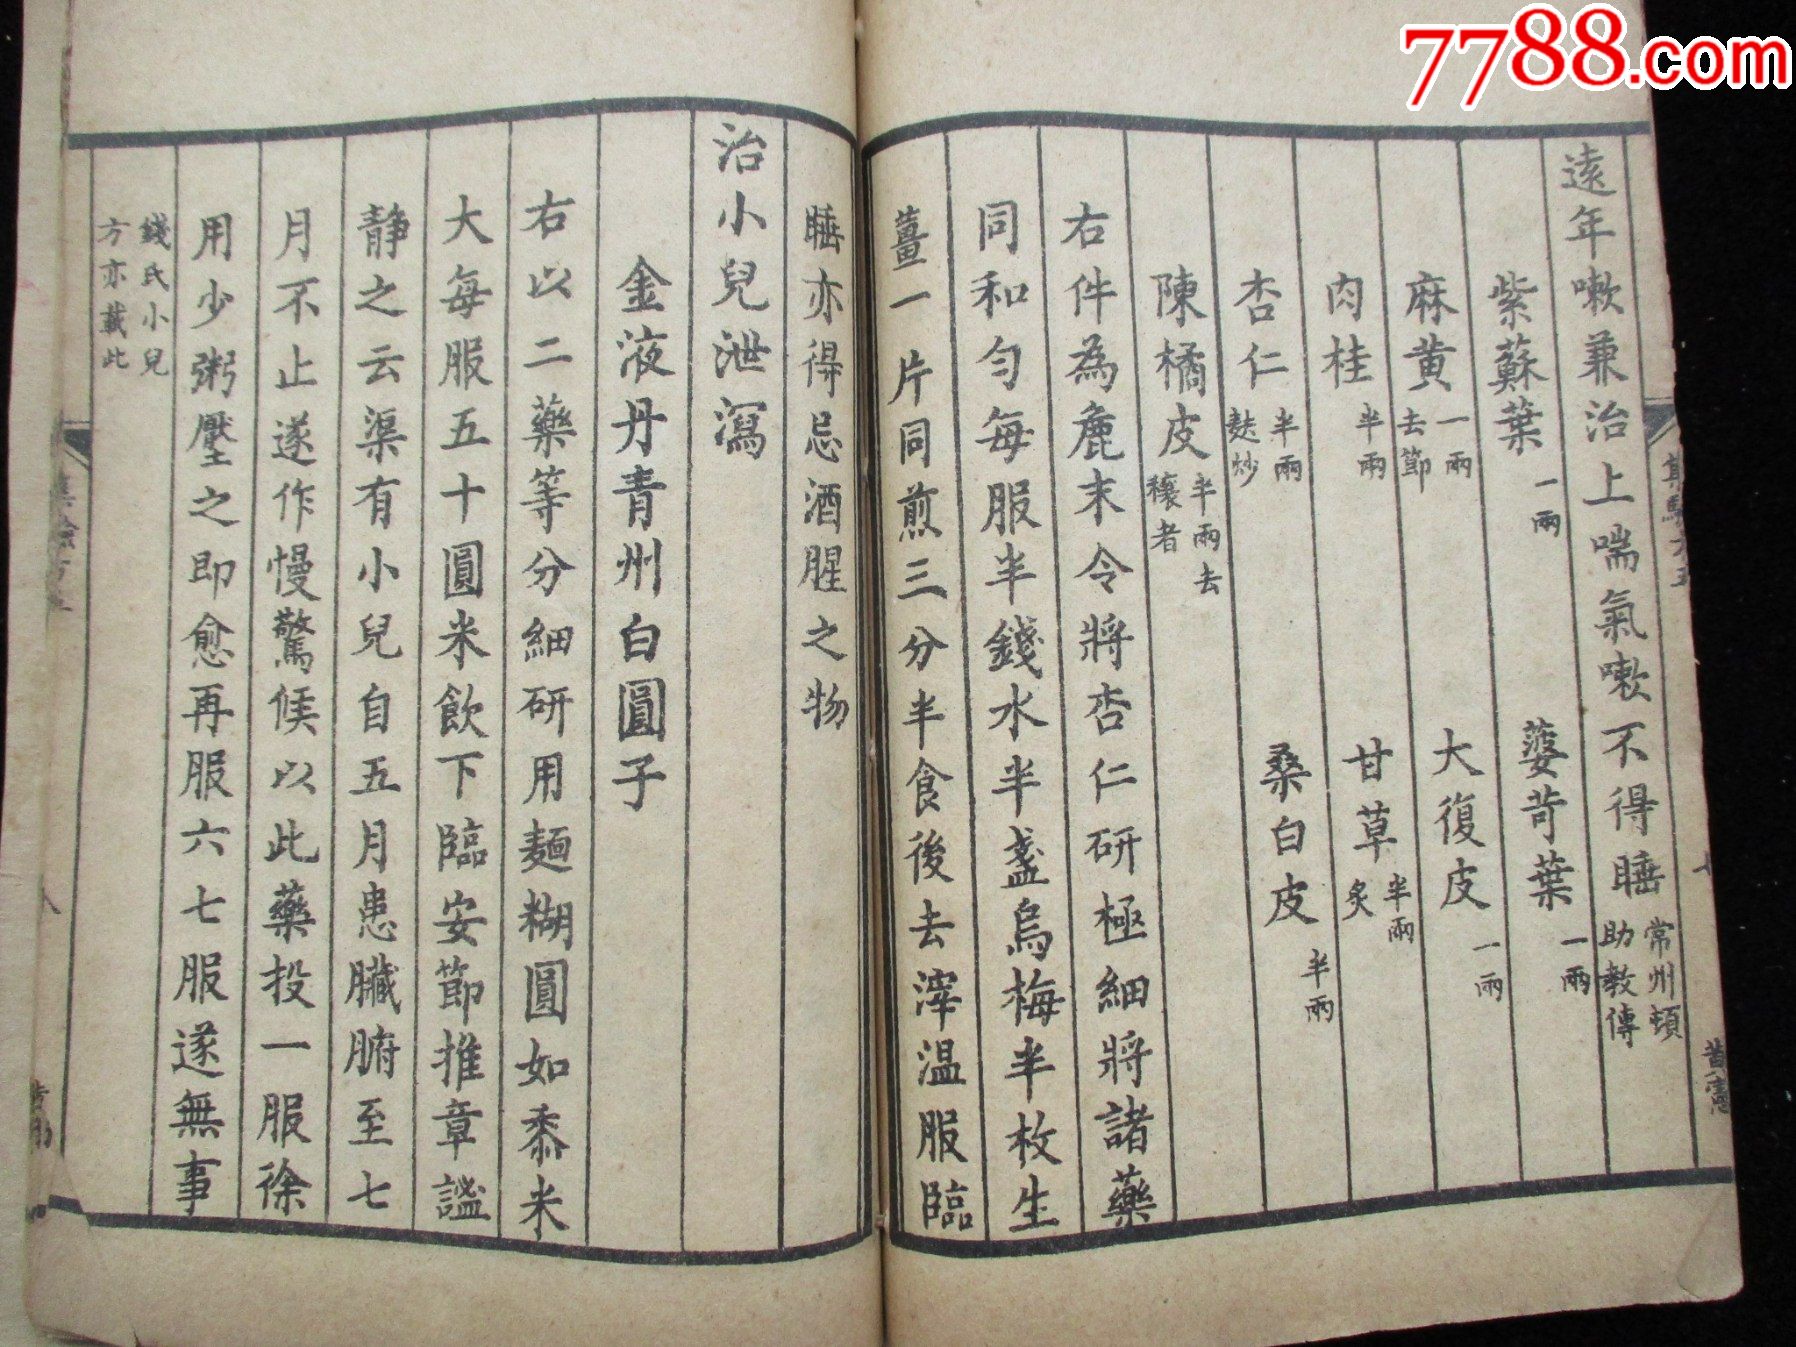 7788.com
遠年嗽兼治上喘氣嗽不得睡常州頓助教傳
紫蘇葉一兩 蔢苛葉一兩
麻黄一兩去節 大復皮一兩
肉桂半兩 甘草半兩炙
杏仁半兩麩炒 桑白皮半兩
陳橘皮半兩去穰者
右件為麁末令將杏仁研極細將諸藥
同和匀每服半錢水半盞烏梅半枚生
薑一片同煎三分半食後去滓温服臨
睡亦得忌酒腥之物
治小兒泄瀉
金液丹青州白圓子
右以二藥等分細研用麺糊圓如黍米
大每服五十圓米飲下臨安節推章謐
静之云渠有小兒自五月患臟腑至七
月不止遂作慢驚候以此藥投一服徐
用少粥壓之即愈再服六七服遂無事
錢氏小兒方亦載此
八